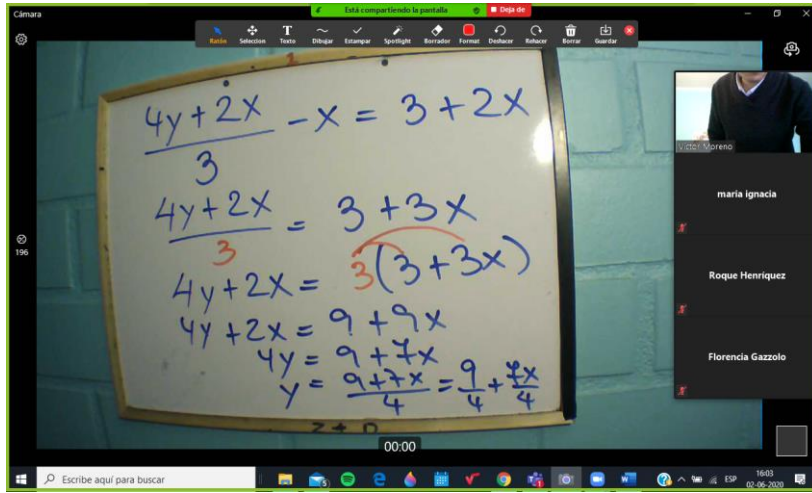 Cámara
Está compartiendo la pantalla
Deja de
Ratón Selection Texto Dibujar Estampar Spotlight Borrador Format Deshacer Rehacer Borrar Guardar
(4y+2x)/3 - x = 3 + 2x
(4y+2x)/3 = 3 + 3x
4y+2x = 3(3+3x)
4y+2x = 9 + 9x
4y = 9 + 7x
y = (9+7x)/4 = 9/4 + 7x/4
196
00:00
Victor Moreno
maría ignacia
Roque Henríquez
Florencia Gazzolo
Escribe aquí para buscar
ESP
16:03
02-06-2020